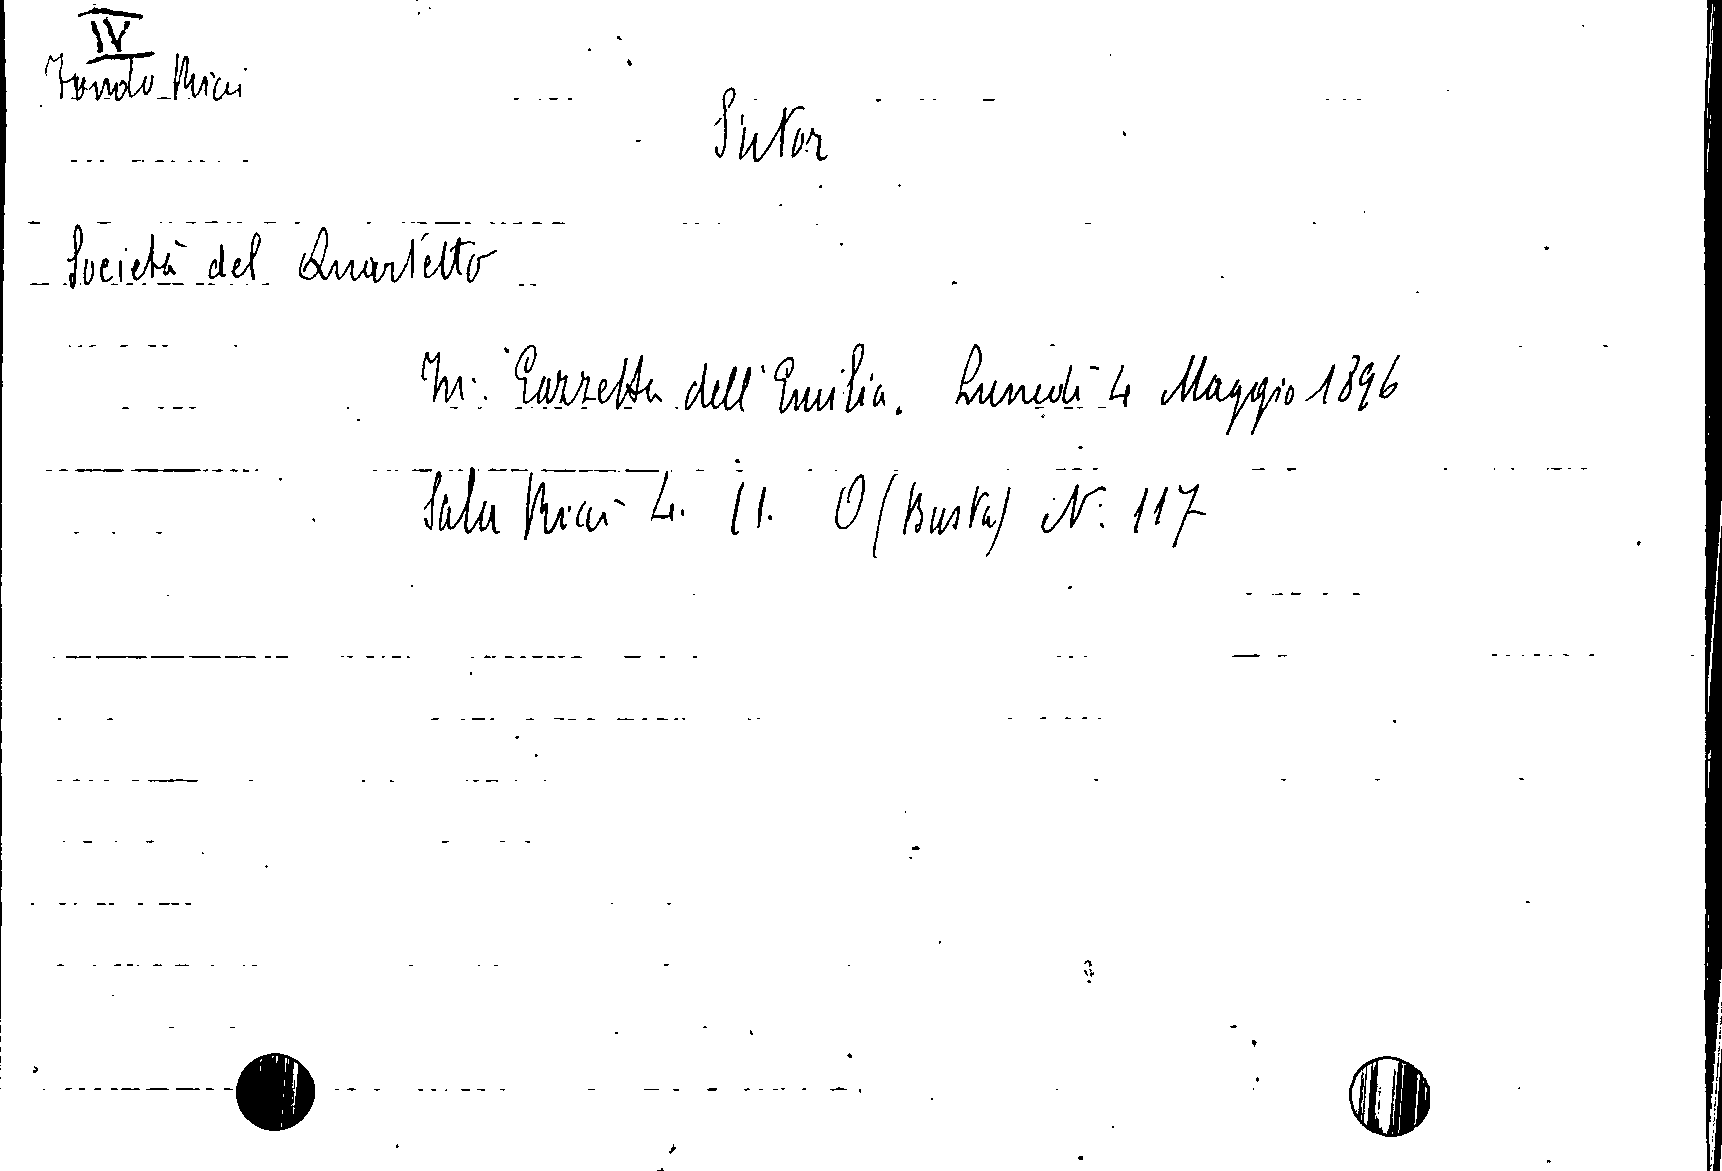 IV
Fondo Ricci
Sutor
Società del Quartetto
In: Gazzetta dell'Emilia. Lunedì 4 Maggio 1896
Sala Ricci 4. II. O (Busta) N. 117